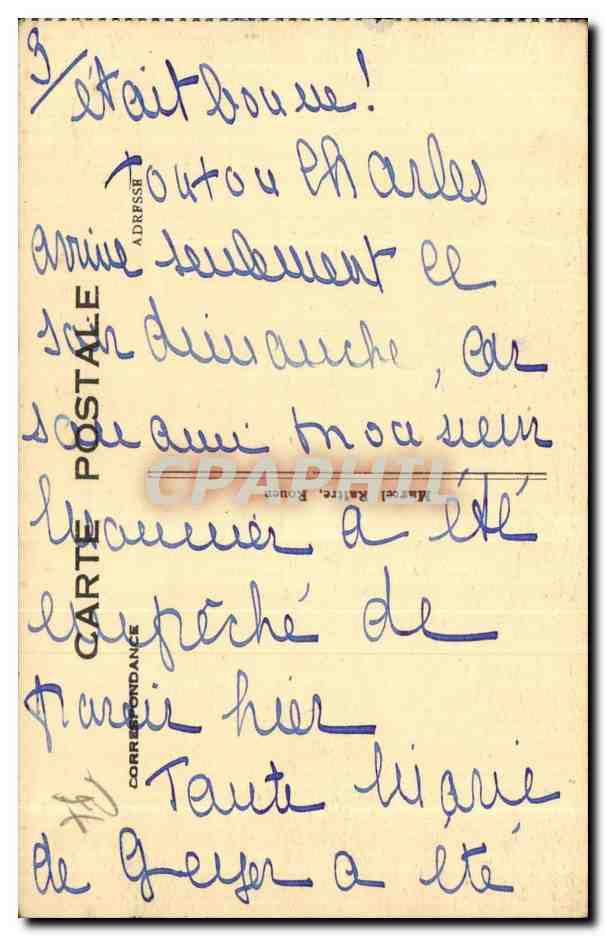 3/
était bonne!
tonton Charles
arrive seulement ce
soir dimanche, car
son ami monsieur
a été
empêché de
hier
Tante Marie
de a été
CARTE POSTALE
ADRESSE
CORRESPONDANCE
Marcel Raître, Rouen
CPAPHIL